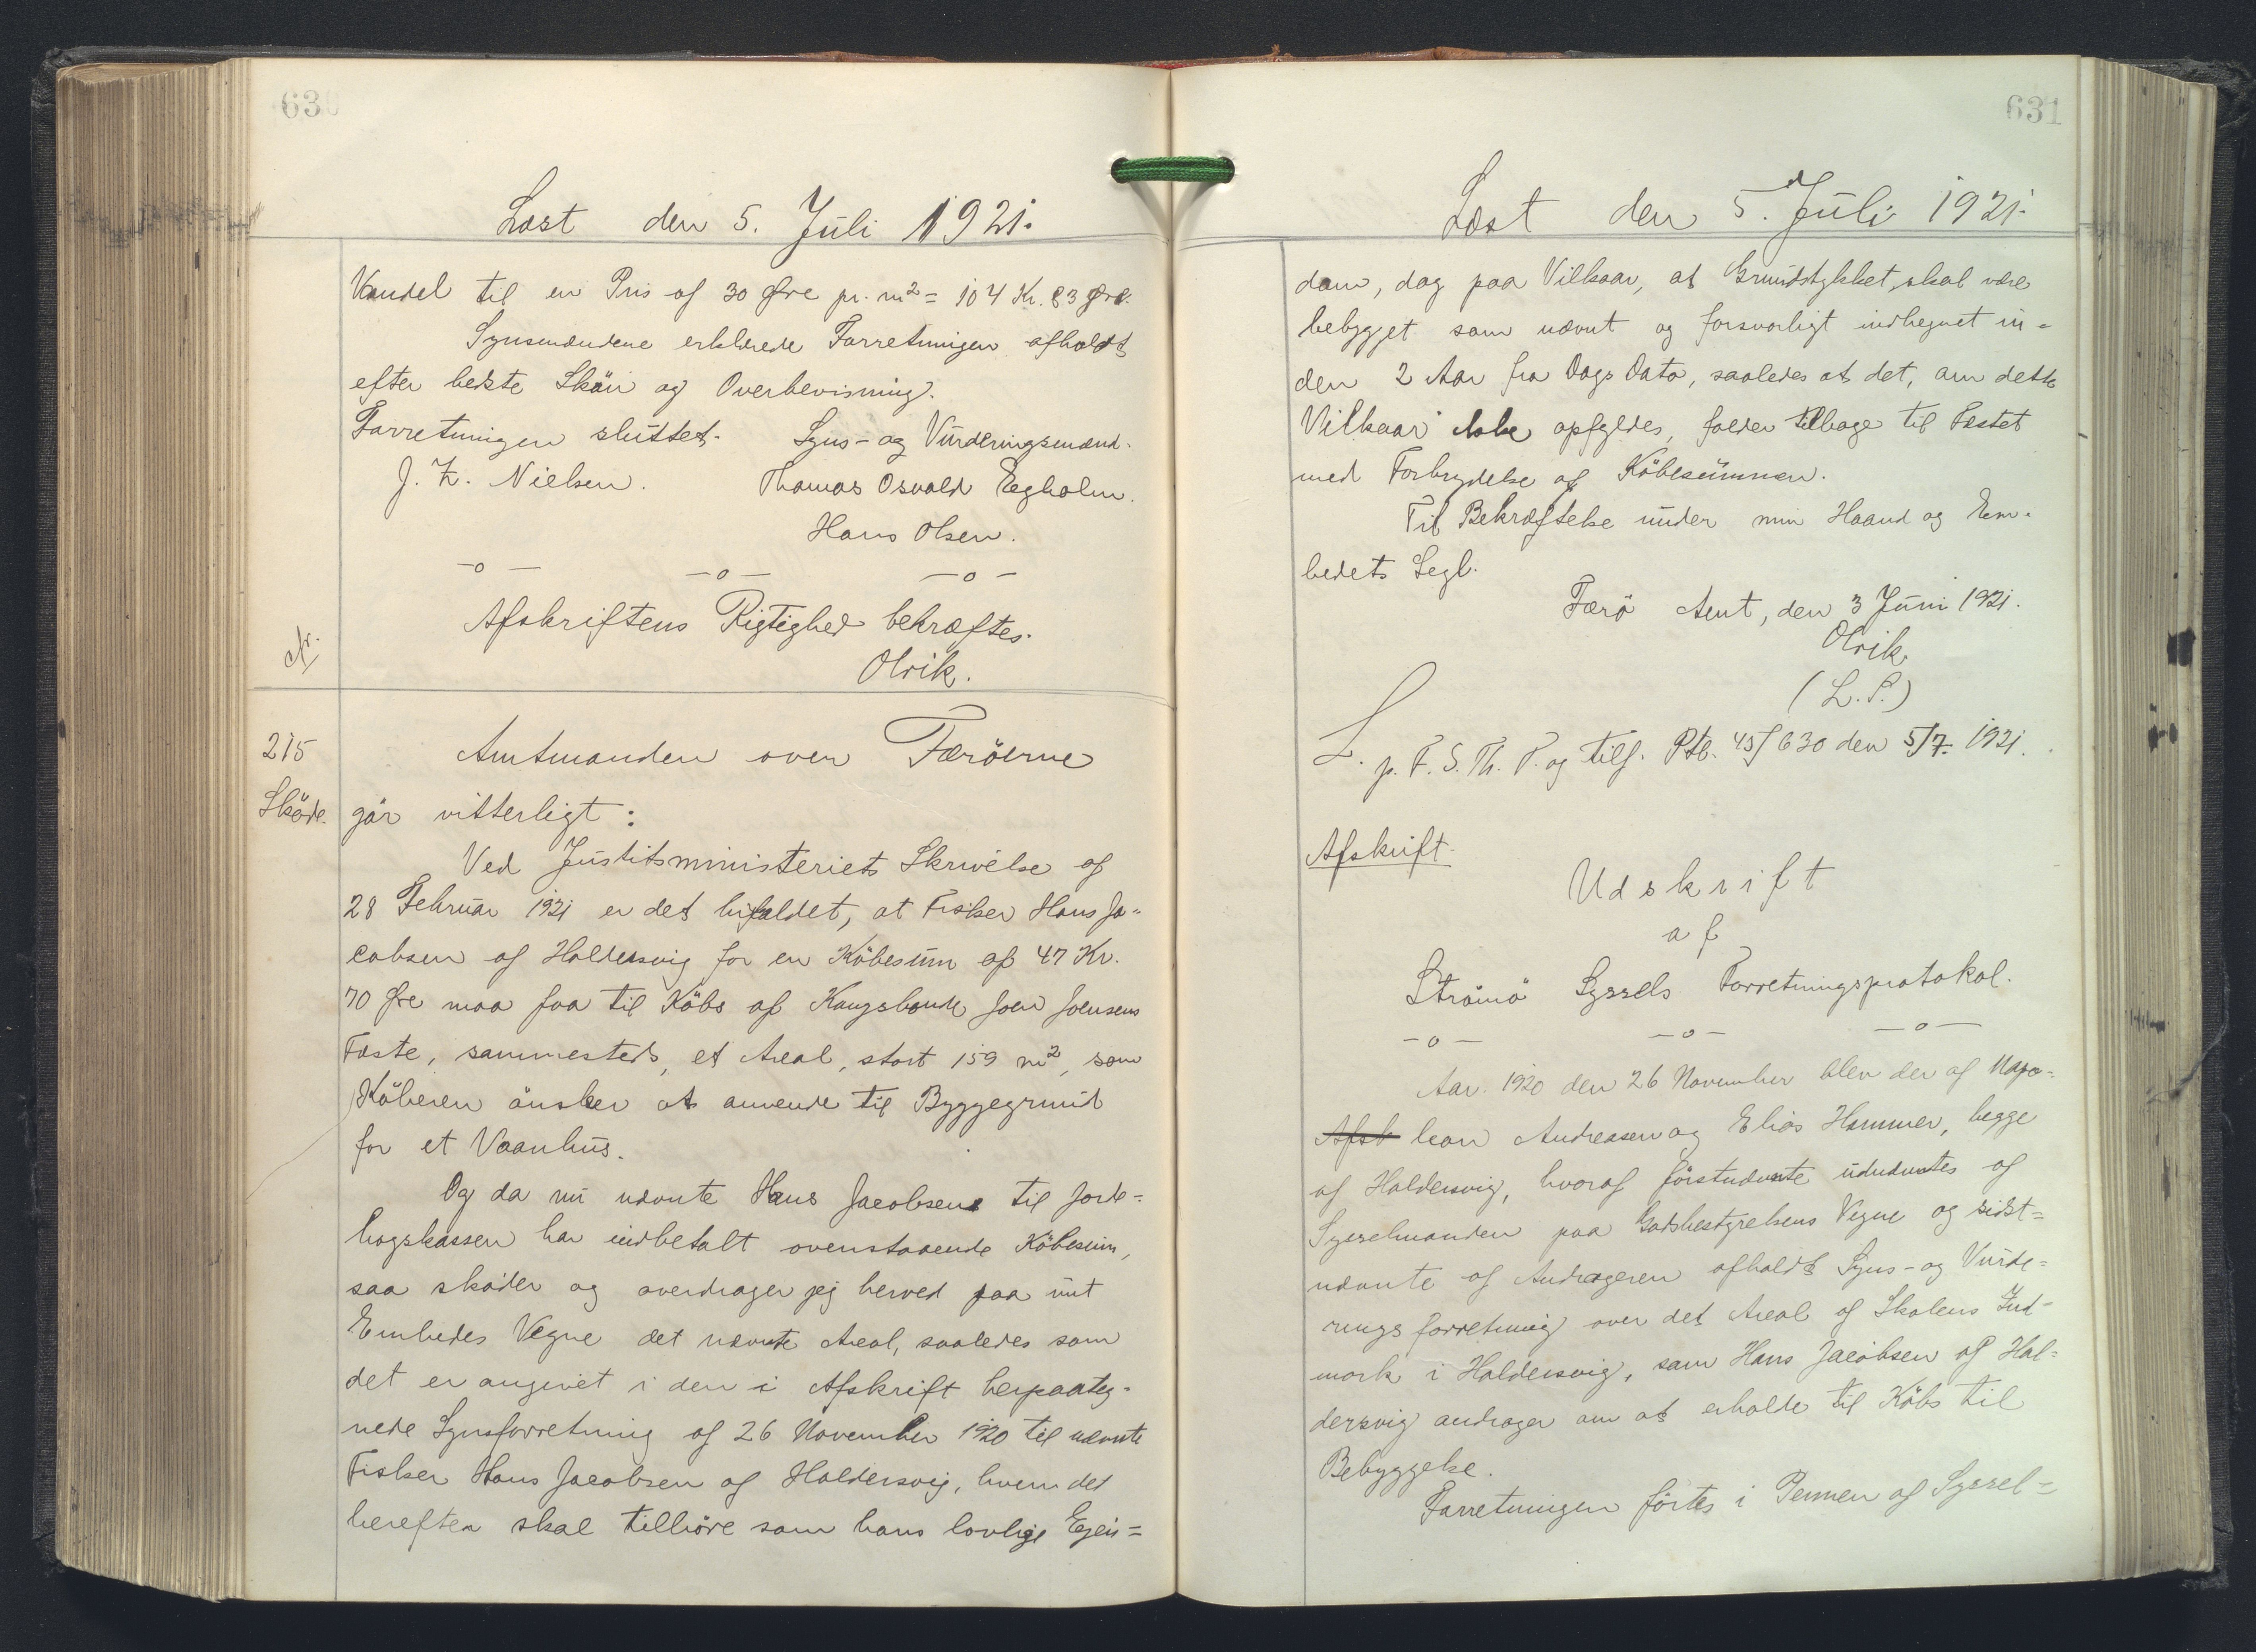 630
Læst den 5. Juli 1921.
Vandel til en Pris af 30 Øre pr. m² = 104 Kr. 83 Øre.
Synsmændene erklærede Forretningen afholdt
efter bedste Skön og Overbevisning.
Forretningen sluttet. Syns- og Vurderingsmænd.
J. Z. Nielsen. Thomas Osvald Egholm.
Hans Olsen.
-o- -o- -o-
Afskriftens Rigtighed bekræftes.
Olrik.
215
Sköde.
Amtmanden over Færöerne
gör vitterligt:
Ved Justitsministeriets Skrivelse af
28 Februar 1921 er det bifaldet, at Fisker Hans Ja-
cobsen af Haldersvig for en Köbesum af 47 Kr.
70 Øre maa faa til Köbs af Kongsbonde Joen Joensens
Fæste, sammesteds, et Areal, stort 159 m², som
Köberen önsker at anvende til Byggegrund
for et Vaanhus.
Og da nu nævnte Hans Jacobsen til Jorde-
bogskassen har indbetalt ovenstaaende Köbesum,
saa sköder og overdrager jeg herved paa mit
Embedes Vegne det nævnte Areal, saaledes som
det er angivet i den i Afskrift herpaateg-
nede Synsforretning af 26 November 1920 til nævnte
Fisker Hans Jacobsen af Haldersvig, hvem det
herefter skal tilhöre som hans lovlige Ejen=
631
Læst den 5. Juli 1921.
dom, dog paa Vilkaar, at Grundstykket skal være
bebygget som nævnt og forsvarligt indhegnet in-
den 2 Aar fra Dags Dato, saaledes at det, om dette
Vilkaar ikke opfyldes, falder tilbage til Fæstet
med Forbrydelse af Köbesummen.
Til Bekræftelse under min Haand og Em-
bedets Segl.
Færö Amt, den 3 Juni 1921.
Olrik.
(L.S.)
L. p. F. S. Th. P. og tilf. Ptb. 45/630 den 5/7. 1921.
Afskrift.
Udskrift
af
Strömö Syssels Forretningsprotokol.
-o- -o- -o-
Aar 1920 den 26 November blev der af Napo-
Afsk leon Andreasen og Elias Hammer, begge
af Haldersvig, hvoraf förstnævnte udnævntes af
Sysselmanden paa Godsbestyrelsens Vegne og sidst=
nævnte af Andrageren afholdt Syns- og Vurde=
rings forretning over det Areal af Skolens Ind-
mark i Haldersvig, som Hans Jacobsen af Hal=
dersvig andrager om at erholde til Köbs til
Bebyggelse.
Forretningen förtes i Pennen af Syssel=